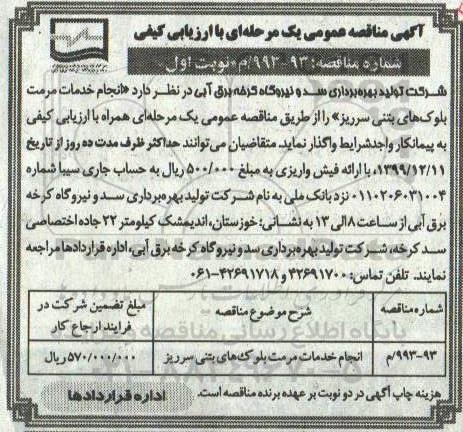 آگهی مناقصه عمومی یک مرحله‌ای با ارزیابی کیفی
شماره مناقصه: ۹۳-۹۹۳/م «نوبت اول»
شرکت تولید بهره‌برداری سد و نیروگاه کرخه برق آبی در نظر دارد «انجام خدمات مرمت
بلوک‌های بتنی سرریز» را از طریق مناقصه عمومی یک مرحله‌ای همراه با ارزیابی کیفی
به پیمانکار واجد شرایط واگذار نماید. متقاضیان می‌توانند حداکثر ظرف مدت ده روز از تاریخ
۱۳۹۹/۱۲/۱۱، با ارائه فیش واریزی به مبلغ ۵۰۰/۰۰۰ ریال به حساب جاری سیبا شماره
۰۱۱۰۲۰۶۰۳۱۰۰۴ نزد بانک ملی به نام شرکت تولید بهره‌برداری سد و نیروگاه کرخه
برق آبی از ساعت ۸ الی ۱۳ به نشانی: خوزستان، اندیمشک کیلومتر ۲۲ جاده اختصاصی
سد کرخه، شرکت تولید بهره‌برداری سد و نیروگاه کرخه برق آبی، اداره قراردادها مراجعه
نمایند. تلفن تماس: ۴۲۶۹۱۷۰۰ و ۴۲۶۹۱۷۱۸-۰۶۱
شماره مناقصه شرح موضوع مناقصه مبلغ تضمین شرکت در
فرایند ارجاع کار
۹۳-۹۹۳/م انجام خدمات مرمت بلوک‌های بتنی سرریز ۵۷۰/۰۰۰/۰۰۰ ریال
هزینه چاپ آگهی در دو نوبت بر عهده برنده مناقصه است.
اداره قراردادها